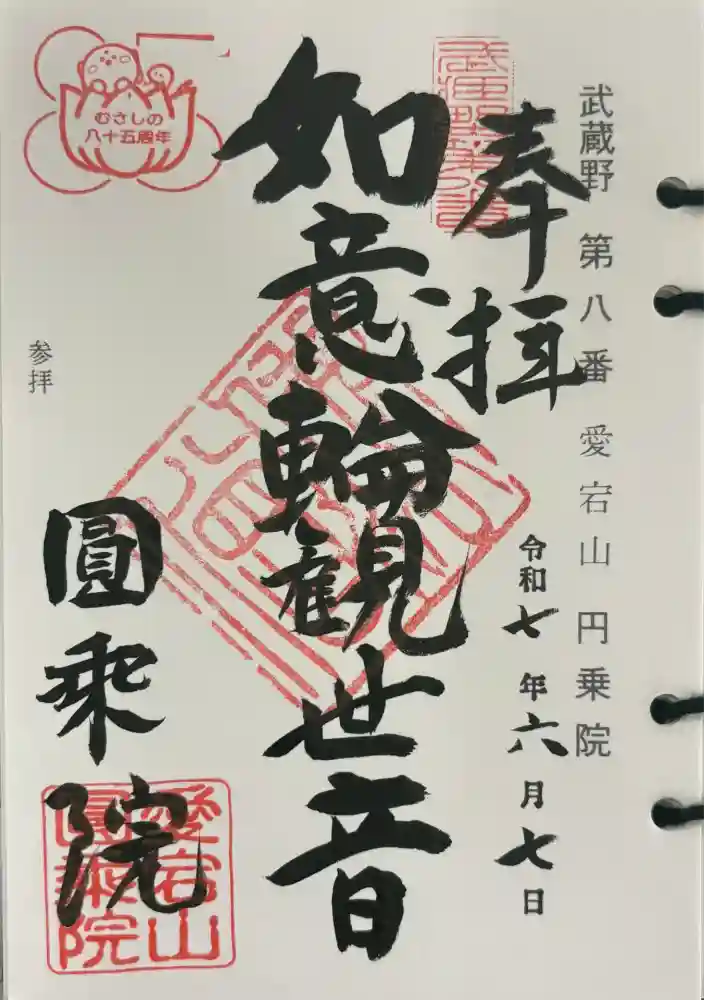 武蔵野 第八番 愛宕山 円乗院
奉拝
令和七年六月七日
如意輪観世音
圓乗院
参拝
むさしの
八十五周年
愛宕山
圓乗院